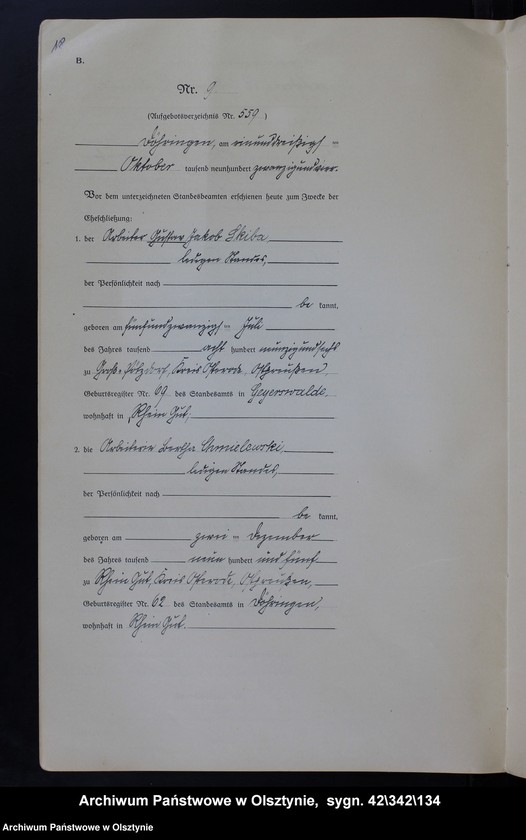 B.
Nr. 9
(Aufgebotsverzeichnis Nr. 559)
Döhringen, am einunddreißigs ten
Oktober tausend neunhundert zwanzigundvier.
Vor dem unterzeichneten Standesbeamten erschienen heute zum Zwecke der
Eheschließung:
1. der Arbeiter Gustav Jakob Skiba,
ledigen Standes,
der Persönlichkeit nach
be kannt,
geboren am fünfundzwanzigsten Juli
des Jahres tausend acht hundert neunzigundsechs
zu Groß-Pötzdorf, Kreis Osterode, Ostpreußen,
Geburtsregister Nr. 69 des Standesamts in Geyerswalde,
wohnhaft in Rhein Gut,
2. die Arbeiterin Bertha Chmielewski,
ledigen Standes,
der Persönlichkeit nach
be kannt,
geboren am zwei ten Dezember
des Jahres tausend neun hundert und fünf
zu Rhein Gut, Kreis Osterode, Ostpreußen,
Geburtsregister Nr. 62 des Standesamts in Döhringen,
wohnhaft in Rhein Gut.
Archiwum Państwowe w Olsztynie, sygn. 42\342\134
Archiwum Państwowe w Olsztynie